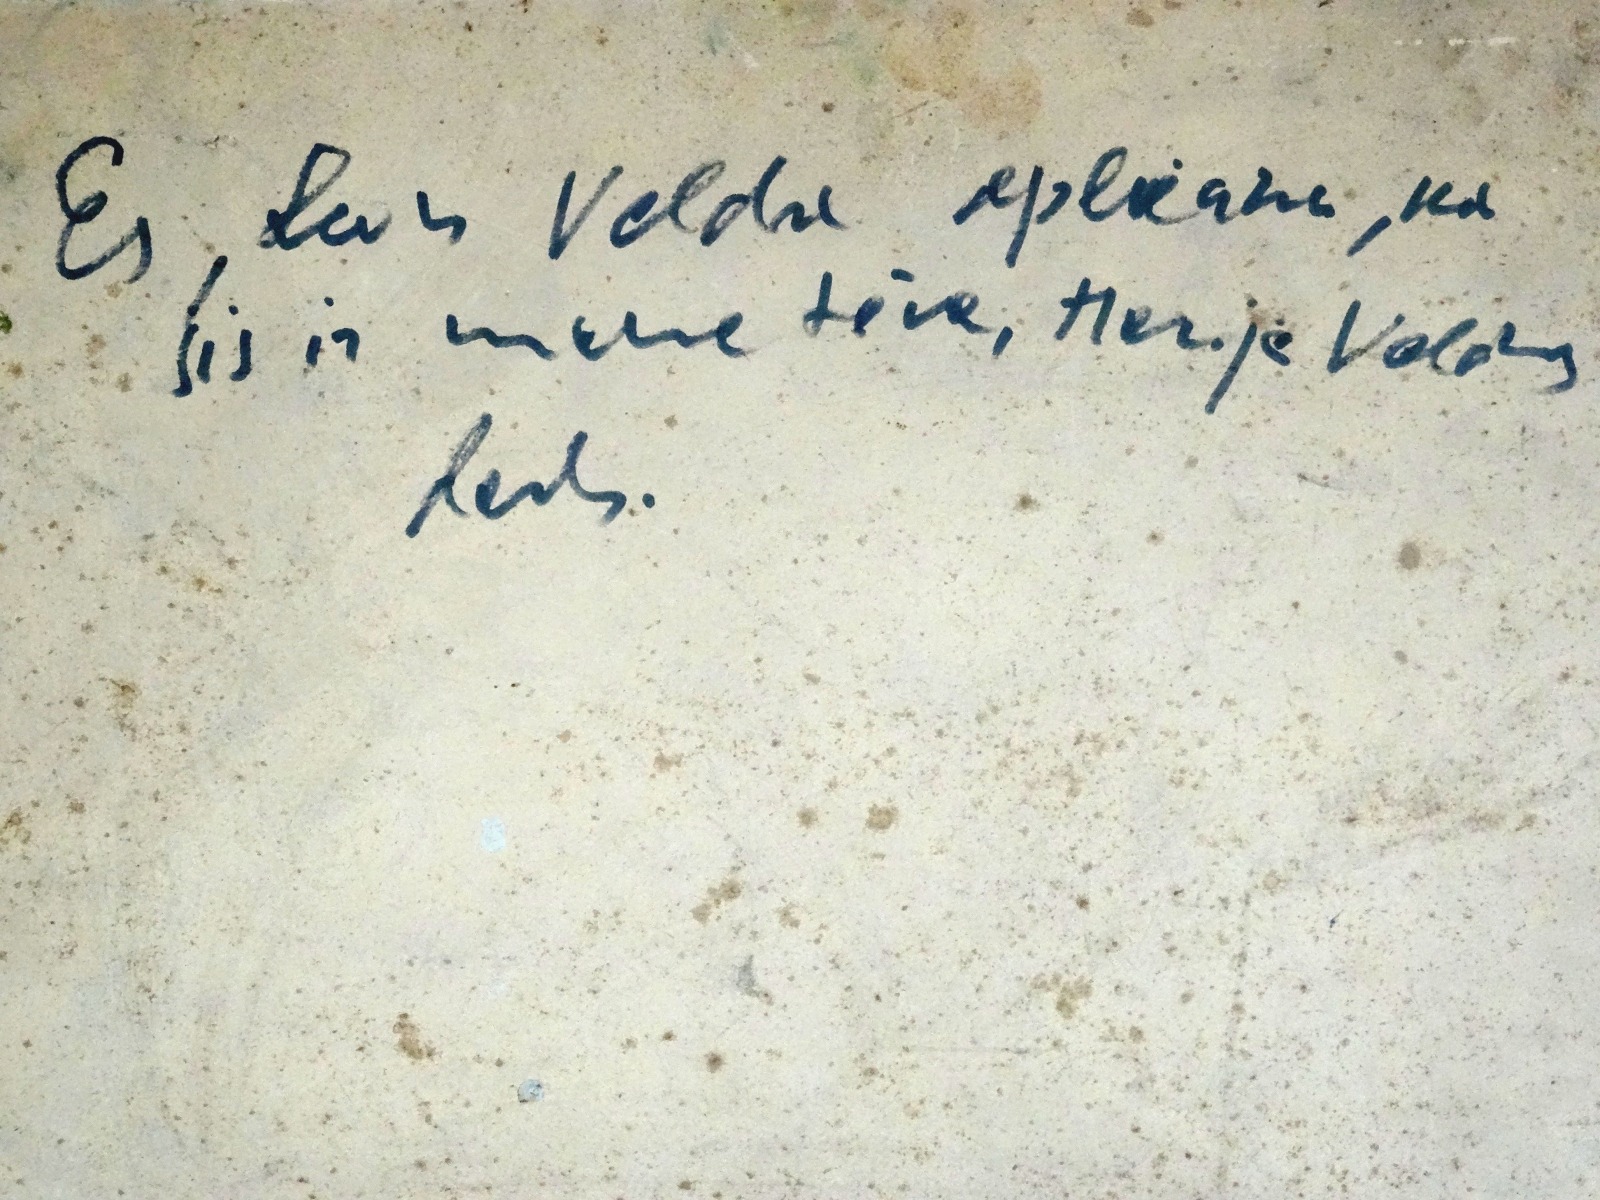 Es, Lauris Veldre apliecinu, ka
šis ir mana tēva, Harija Veldres
darbs.